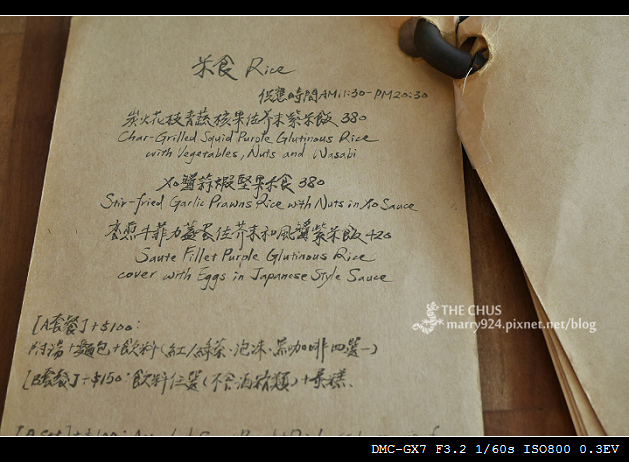 米食 Rice
供應時間AM11:30-PM20:30
炭火花枝青蔬核果佐芥末紫米飯 380
Char-Grilled Squid Purple Glutinous Rice
with Vegetables, Nuts and Wasabi
XO醬蒜蝦堅果米食 380
Stir-fried Garlic Prawns Rice with Nuts in Xo Sauce
香煎牛菲力蓋蛋佐芥末和風醬紫米飯 420
Saute Fillet Purple Glutinous Rice
cover with Eggs in Japanese Style Sauce
[A套餐]+$100:
附湯+麵包+飲料(紅/綠茶、泡沫、黑咖啡 四選一)
[B套餐]+$150:飲料任選(不含酒精類)+蛋糕.
THE CHUS
marry924.pixnet.net/blog
DMC-GX7 F3.2 1/60s ISO800 0.3EV